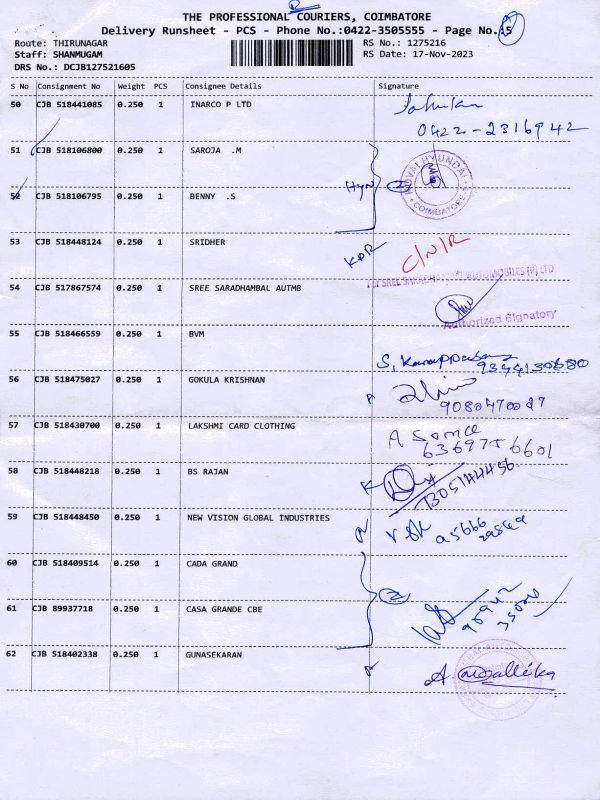 THE PROFESSIONAL COURIERS, COIMBATORE
Delivery Runsheet - PCS - Phone No.:0422-3505555 - Page No.:5
Route: THIRUNAGAR
RS No.: 1275216
Staff: SHANMUGAM
RS Date: 17-Nov-2023
DRS No.: DCJB127521605
S No Consignment No Weight PCS Consignee Details Signature
50 CJB 518441085 0.250 1 INARCO P LTD
0422-2316942
51 CJB 518106800 0.250 1 SAROJA .M
HYUNDAI
52 CJB 518106795 0.250 1 BENNY .S
Hyn 2
COIMBATORE
53 CJB 518448124 0.250 1 SRIDHER
KPR C/N/R
54 CJB 517867574 0.250 1 SREE SARADHAMBAL AUTMB
For SREE SARADHAMBAL AUTOMOBILES (P) LTD
Authorized Signatory
55 CJB 518466559 0.250 1 BVM
S.
56 CJB 518475027 0.250 1 GOKULA KRISHNAN
57 CJB 518430700 0.250 1 LAKSHMI CARD CLOTHING
A
58 CJB 518448218 0.250 1 BS RAJAN
59 CJB 518448450 0.250 1 NEW VISION GLOBAL INDUSTRIES
60 CJB 518409514 0.250 1 CADA GRAND
2
61 CJB 89937718 0.250 1 CASA GRANDE CBE
62 CJB 518402338 0.250 1 GUNASEKARAN
A Mallika